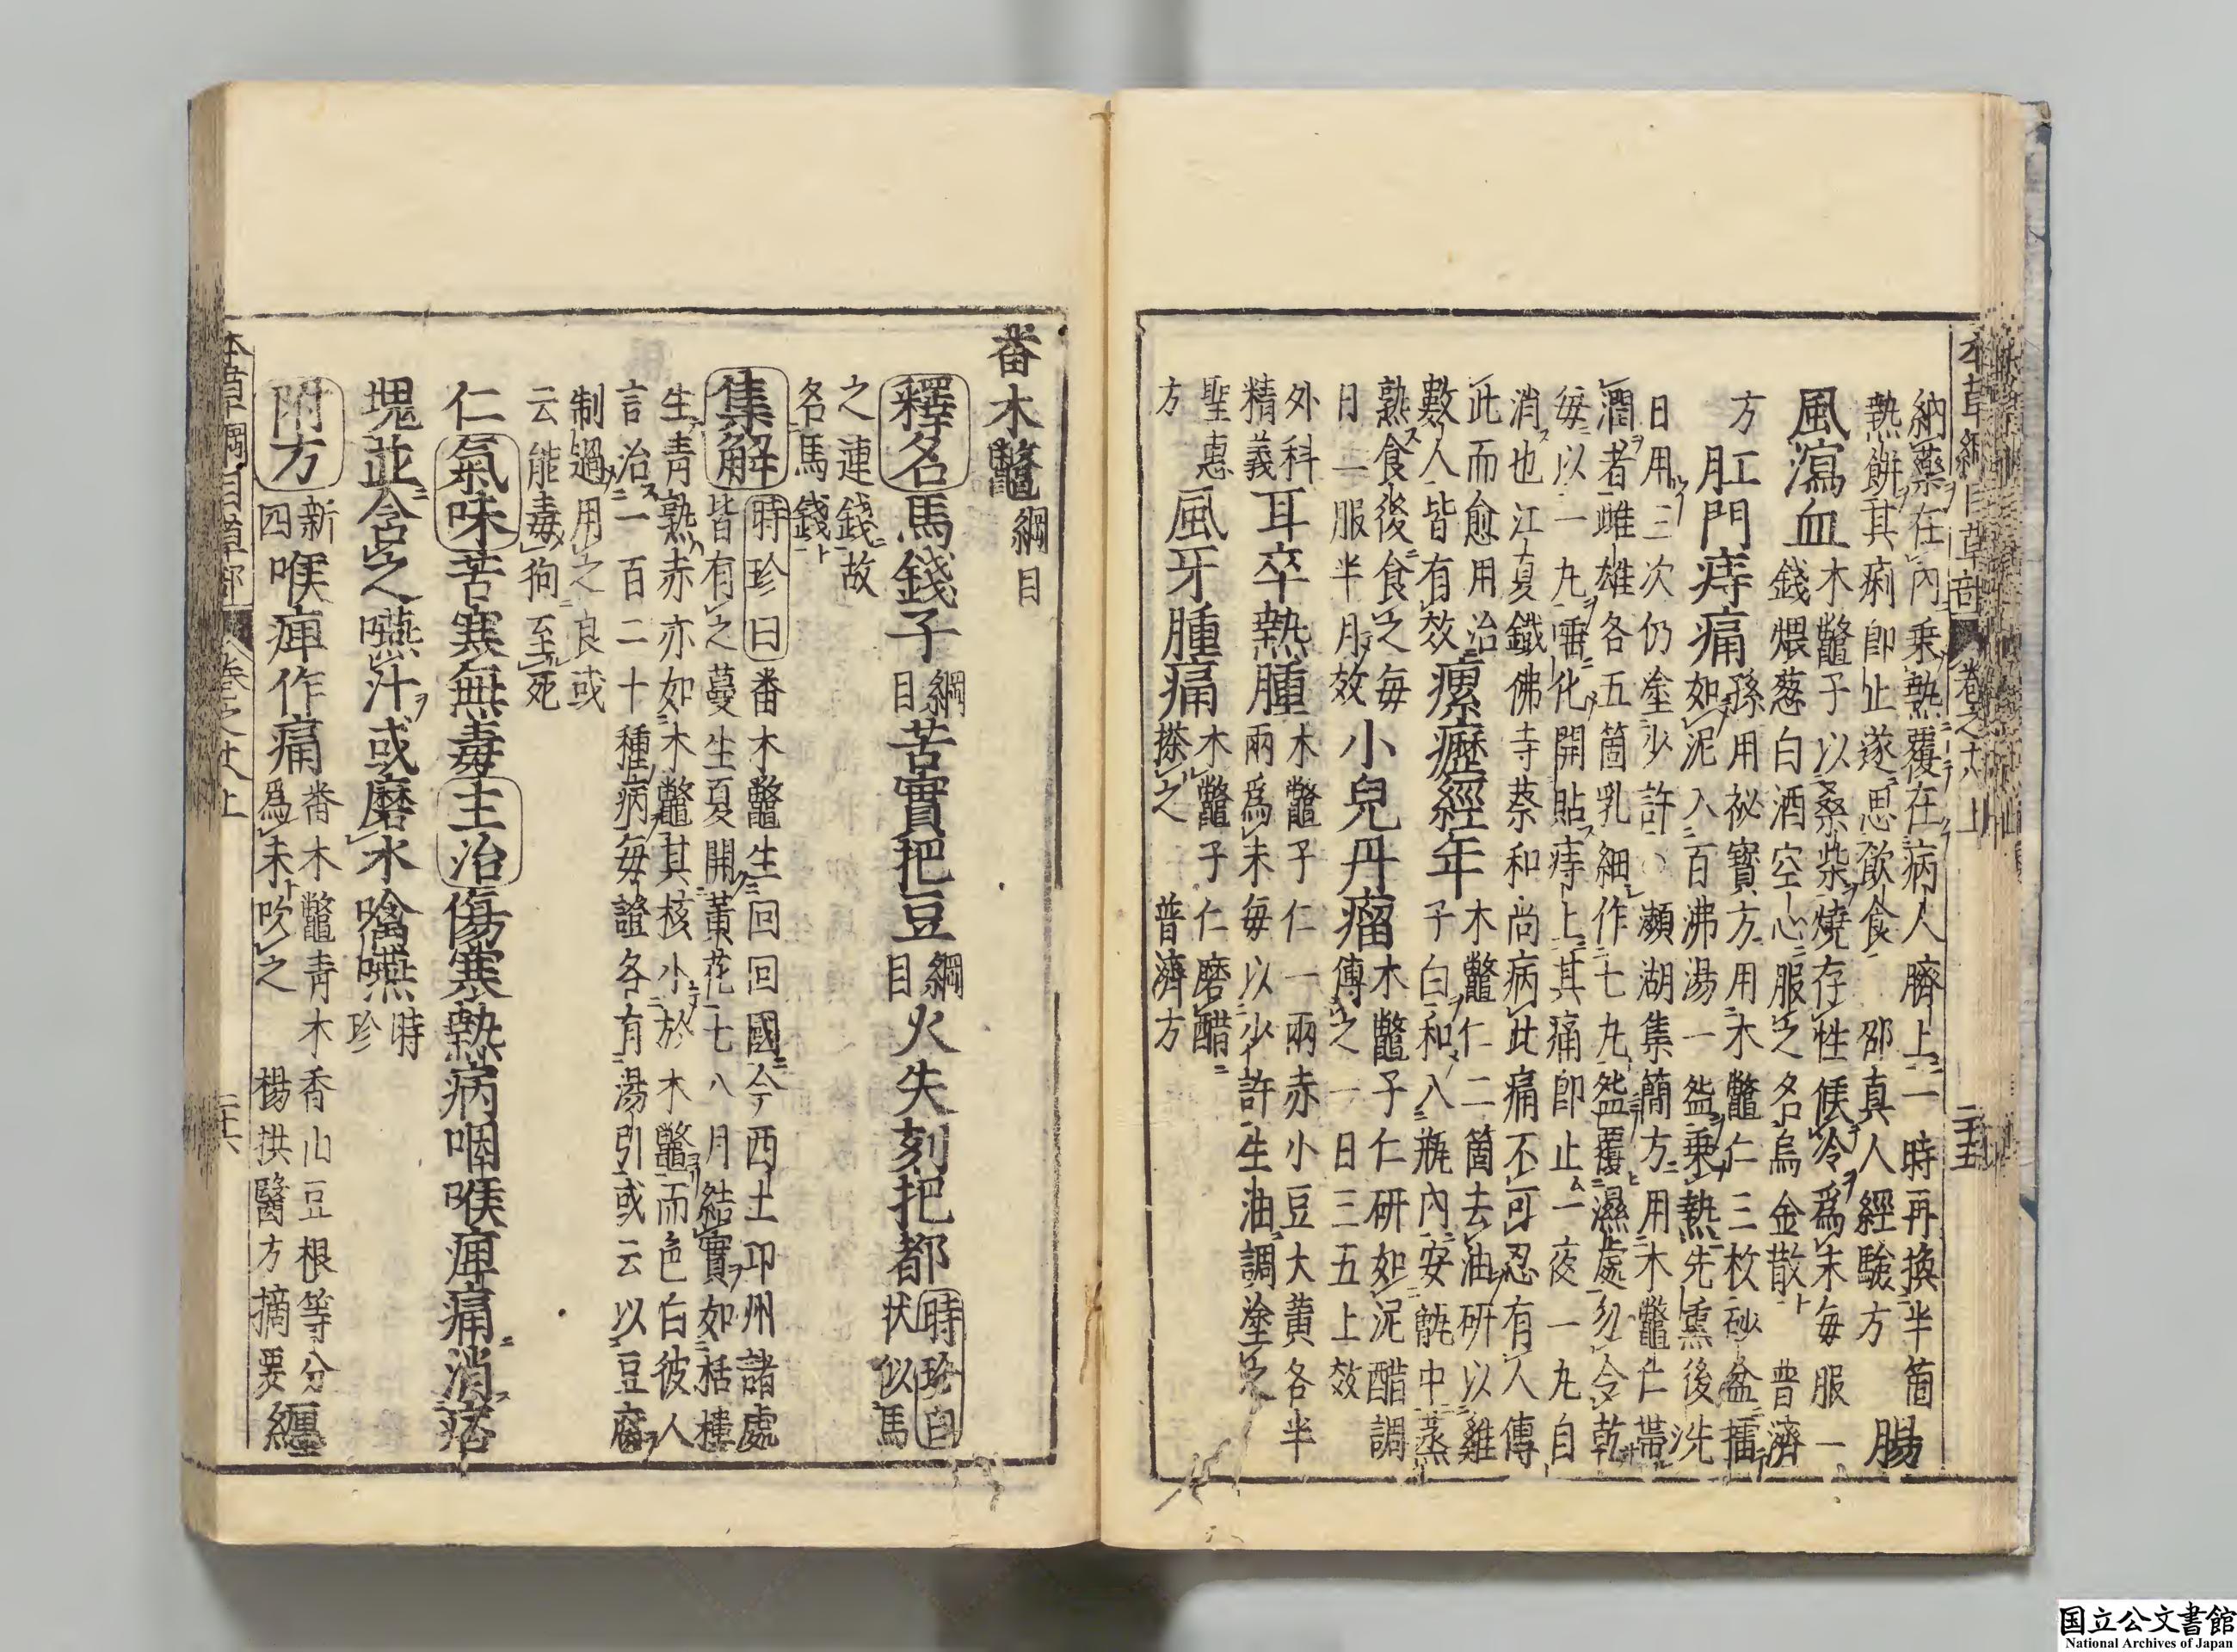 本草綱目草部 卷之十八上 二十五
納藥在内乘熱覆在病人臍上一時再換半箇
熱餅其痢即止遂思飲食 邵真人經驗方 腸
風瀉血 木鼈子以桑柴燒存性候冷爲末每服一
錢煨葱白酒空心服之名烏金散 普濟
方 肛門痔痛 孫用祕寶方用木鼈仁三枚砂盆擂
如泥入百沸湯一盌乘熱先熏後洗
日用三次仍塗少許○瀕湖集簡方用木鼈仁帶
潤者雌雄各五箇乳細作七丸盌覆濕處勿令乾
每以一丸唾化開貼痔上其痛即止一夜一丸自
消也江夏鐵佛寺蔡和尚病此痛不可忍有人傳
此而愈用治
數人皆有效 瘰癧經年 木鼈仁二箇去油研以雞
子白和入瓶内安甑中蒸
熟食後食之每
日一服半月效 小兒丹瘤 木鼈子仁研如泥醋調
傅之一日三五上效
外科
精義 耳卒熱腫 木鼈子仁一兩赤小豆大黃各半
兩爲末每以少許生油調塗之
聖惠
方 風牙腫痛 木鼈子仁磨醋
搽之 普濟方
番木鼈 綱目
釋名 馬錢子 綱目 苦實把豆 綱目 火失刻把都 時珍曰
狀似馬
之連錢故
名馬錢
集解 時珍曰 番木鼈生回回國今西土卬州諸處
皆有之蔓生夏開黃花七八月結實如栝樓
生青熟赤亦如木鼈其核小於木鼈而色白彼人
言治一百二十種病每證各有湯引或云以豆腐
制過用之良或
云能毒狗至死
仁 氣味 苦寒無毒 主治 傷寒熱病咽喉痺痛消痞
塊並含之嚥汁或磨水噙嚥 時珍
附方 新四 喉痺作痛 番木鼈青木香山豆根等分
爲末吹之 楊拱醫方摘要 纏
本草綱目草部 卷之十八上 二十六
国立公文書館
National Archives of Japan